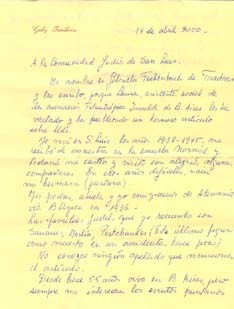 Gaby Friedheim
14 de abril 2000.-
A la Comunidad Judía de San Luis.
Mi nombre es Gabriela de
y les escribo, porque Laura, asistente social de
la asociación Filantrópica Israelita de B. Aires les ha
y ha publicado un hermoso artículo
sobre Uds.
Yo viví en S. Luis los años 1938-1945, me
recibí de maestra en la escuela Normal y
todavía me carteo y visito con alegría algunas
compañeras. En esos años difíciles, nació
mi hermana (puntana).
Mis padres, abuela y yo emigramos de Alemania
vía B. Aires en 1936.-
Las familias judías, que yo recuerdo son
Samper, Berlin, (Este último figura
como muerto en un accidente, hace poco)
No conozco ningún apellido que menciona
el artículo.
Desde hace 55 años vivo en B. Aires, pero
siempre me interesan los eventos puntanos